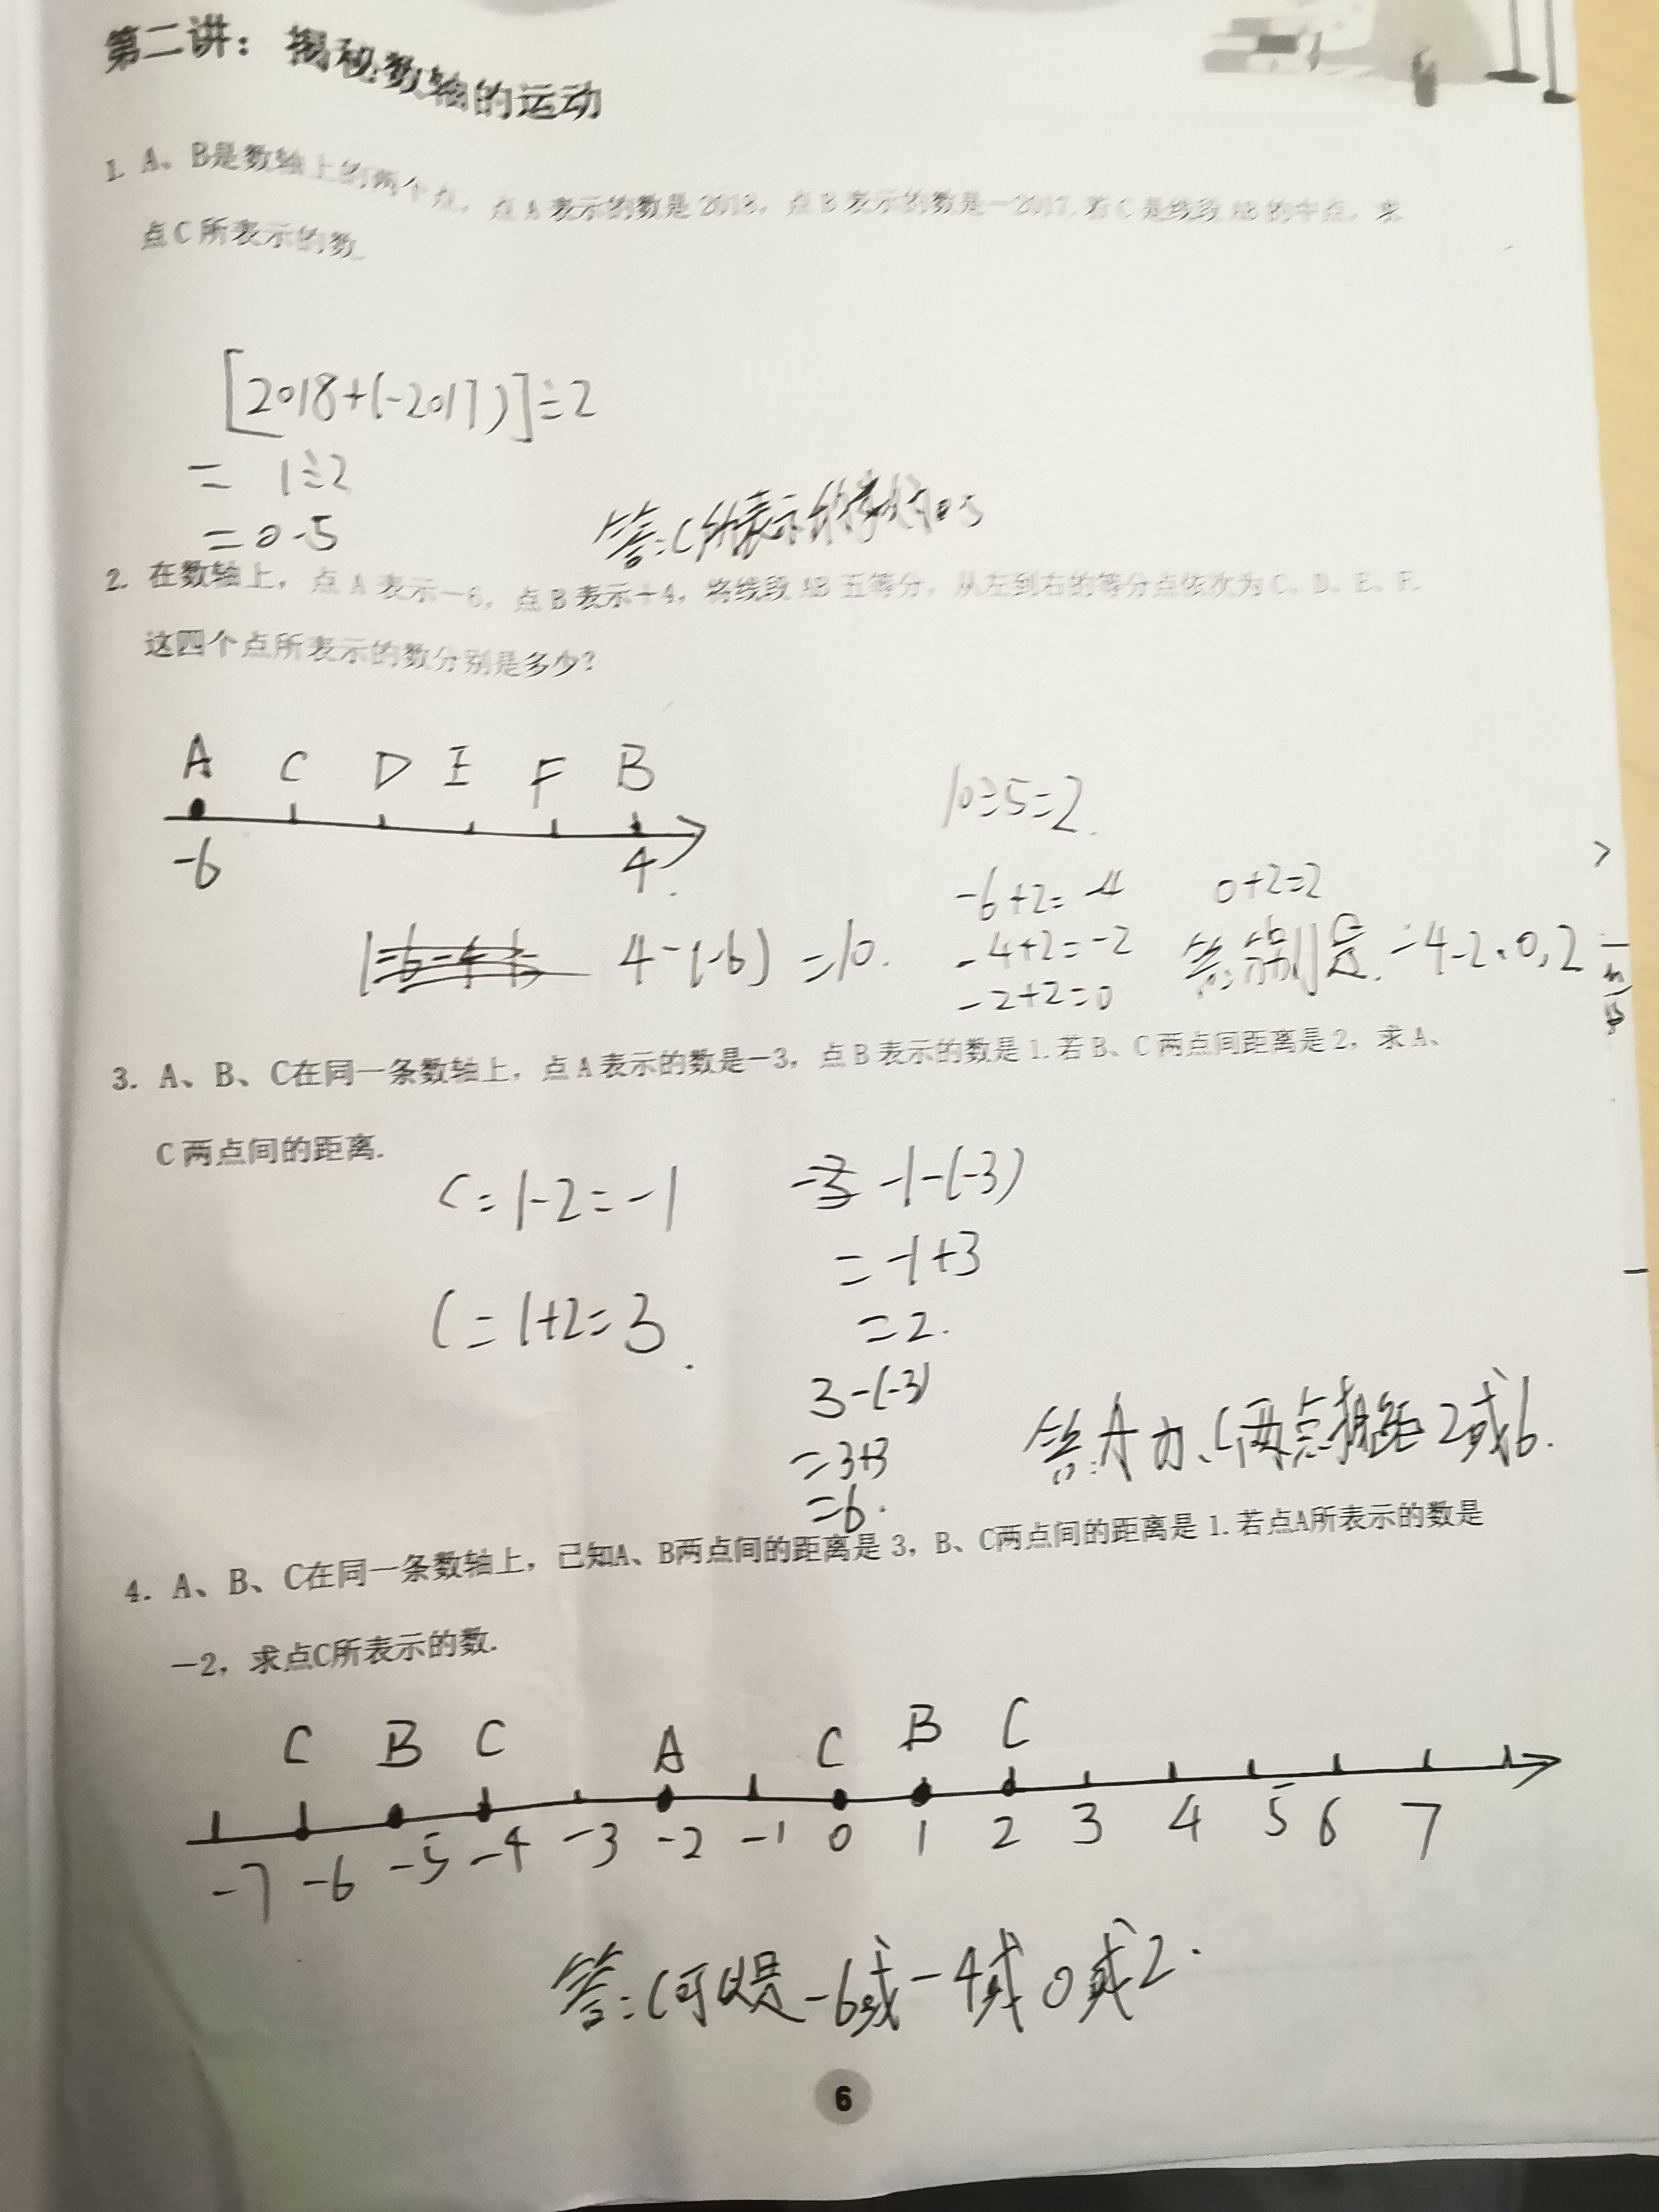 第二讲：揭秘数轴的运动
1. A、B是数轴上的两个点，点A表示的数是2018，点B表示的数是-2017.若C是线段AB的中点，求
点C所表示的数.
[2018+(-2017)]÷2
= 1÷2
=0.5
答:C所表示的数是0.5
2. 在数轴上，点A表示-6，点B表示+4，将线段AB五等分，从左到右的等分点依次为C、D、E、F.
这四个点所表示的数分别是多少?
A C D E F B
-6 4.
10÷5=2.
-6+2=-4 0+2=2
4-(-6)=10.
-4+2=-2
答:分别是:-4,-2,0,2
-2+2=0
3. A、B、C在同一条数轴上，点A表示的数是-3，点B表示的数是1.若B、C两点间距离是2，求A、
C两点间的距离.
C=1-2=-1
-1-(-3)
=-1+3
C=1+2=3.
=2.
3-(-3)
=3+3
=6.
答:A、C两点相距2或6.
4. A、B、C在同一条数轴上，已知A、B两点间的距离是3，B、C两点间的距离是1.若点A所表示的数是
-2，求点C所表示的数.
C B C A C B C
-7 -6 -5 -4 -3 -2 -1 0 1 2 3 4 5 6 7
答:C可以是-6或-4或0或2.
6